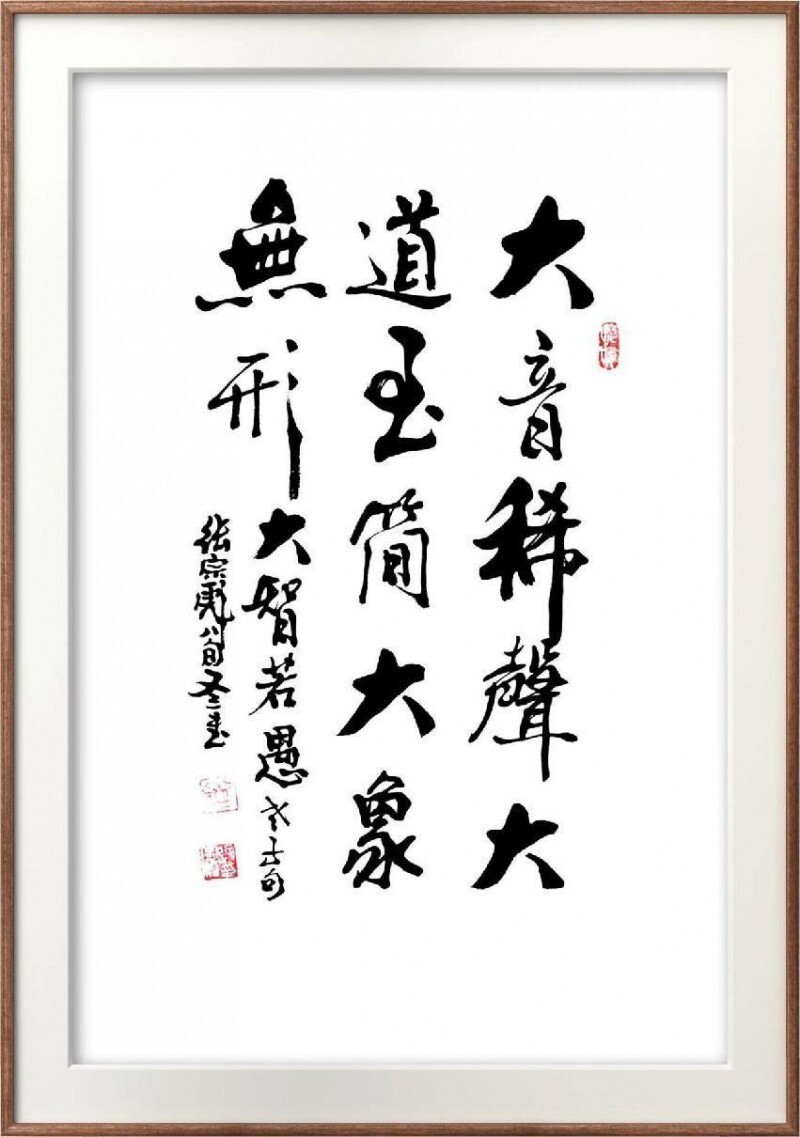 大音稀聲大
道至简大象
無形
大智若愚老子句
张宗八旬書